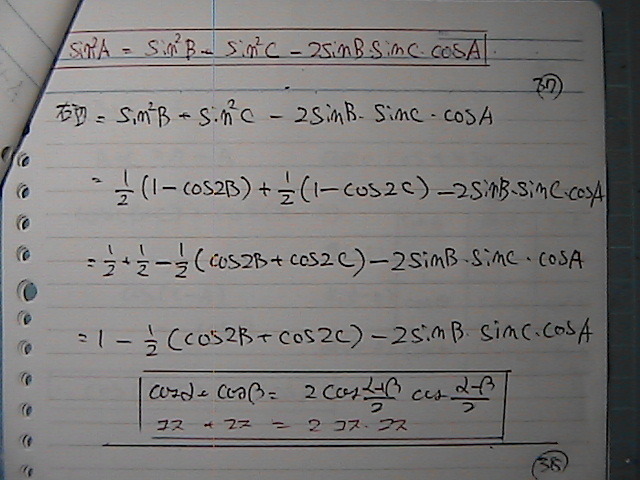 sin²A = sin²B + sin²C - 2sinB·sinC·cosA
37
右辺 = sin²B + sin²C - 2sinB·sinC·cosA
= 1/2 (1-cos2B) + 1/2 (1-cos2C) - 2sinB·sinC·cosA
= 1/2 + 1/2 - 1/2 (cos2B + cos2C) - 2sinB·sinC·cosA
= 1 - 1/2 (cos2B + cos2C) - 2sinB·sinC·cosA
cosα + cosβ = 2cos (α+β)/2 cos (α-β)/2
ココ + ココ = 2 ココ·ココ
38